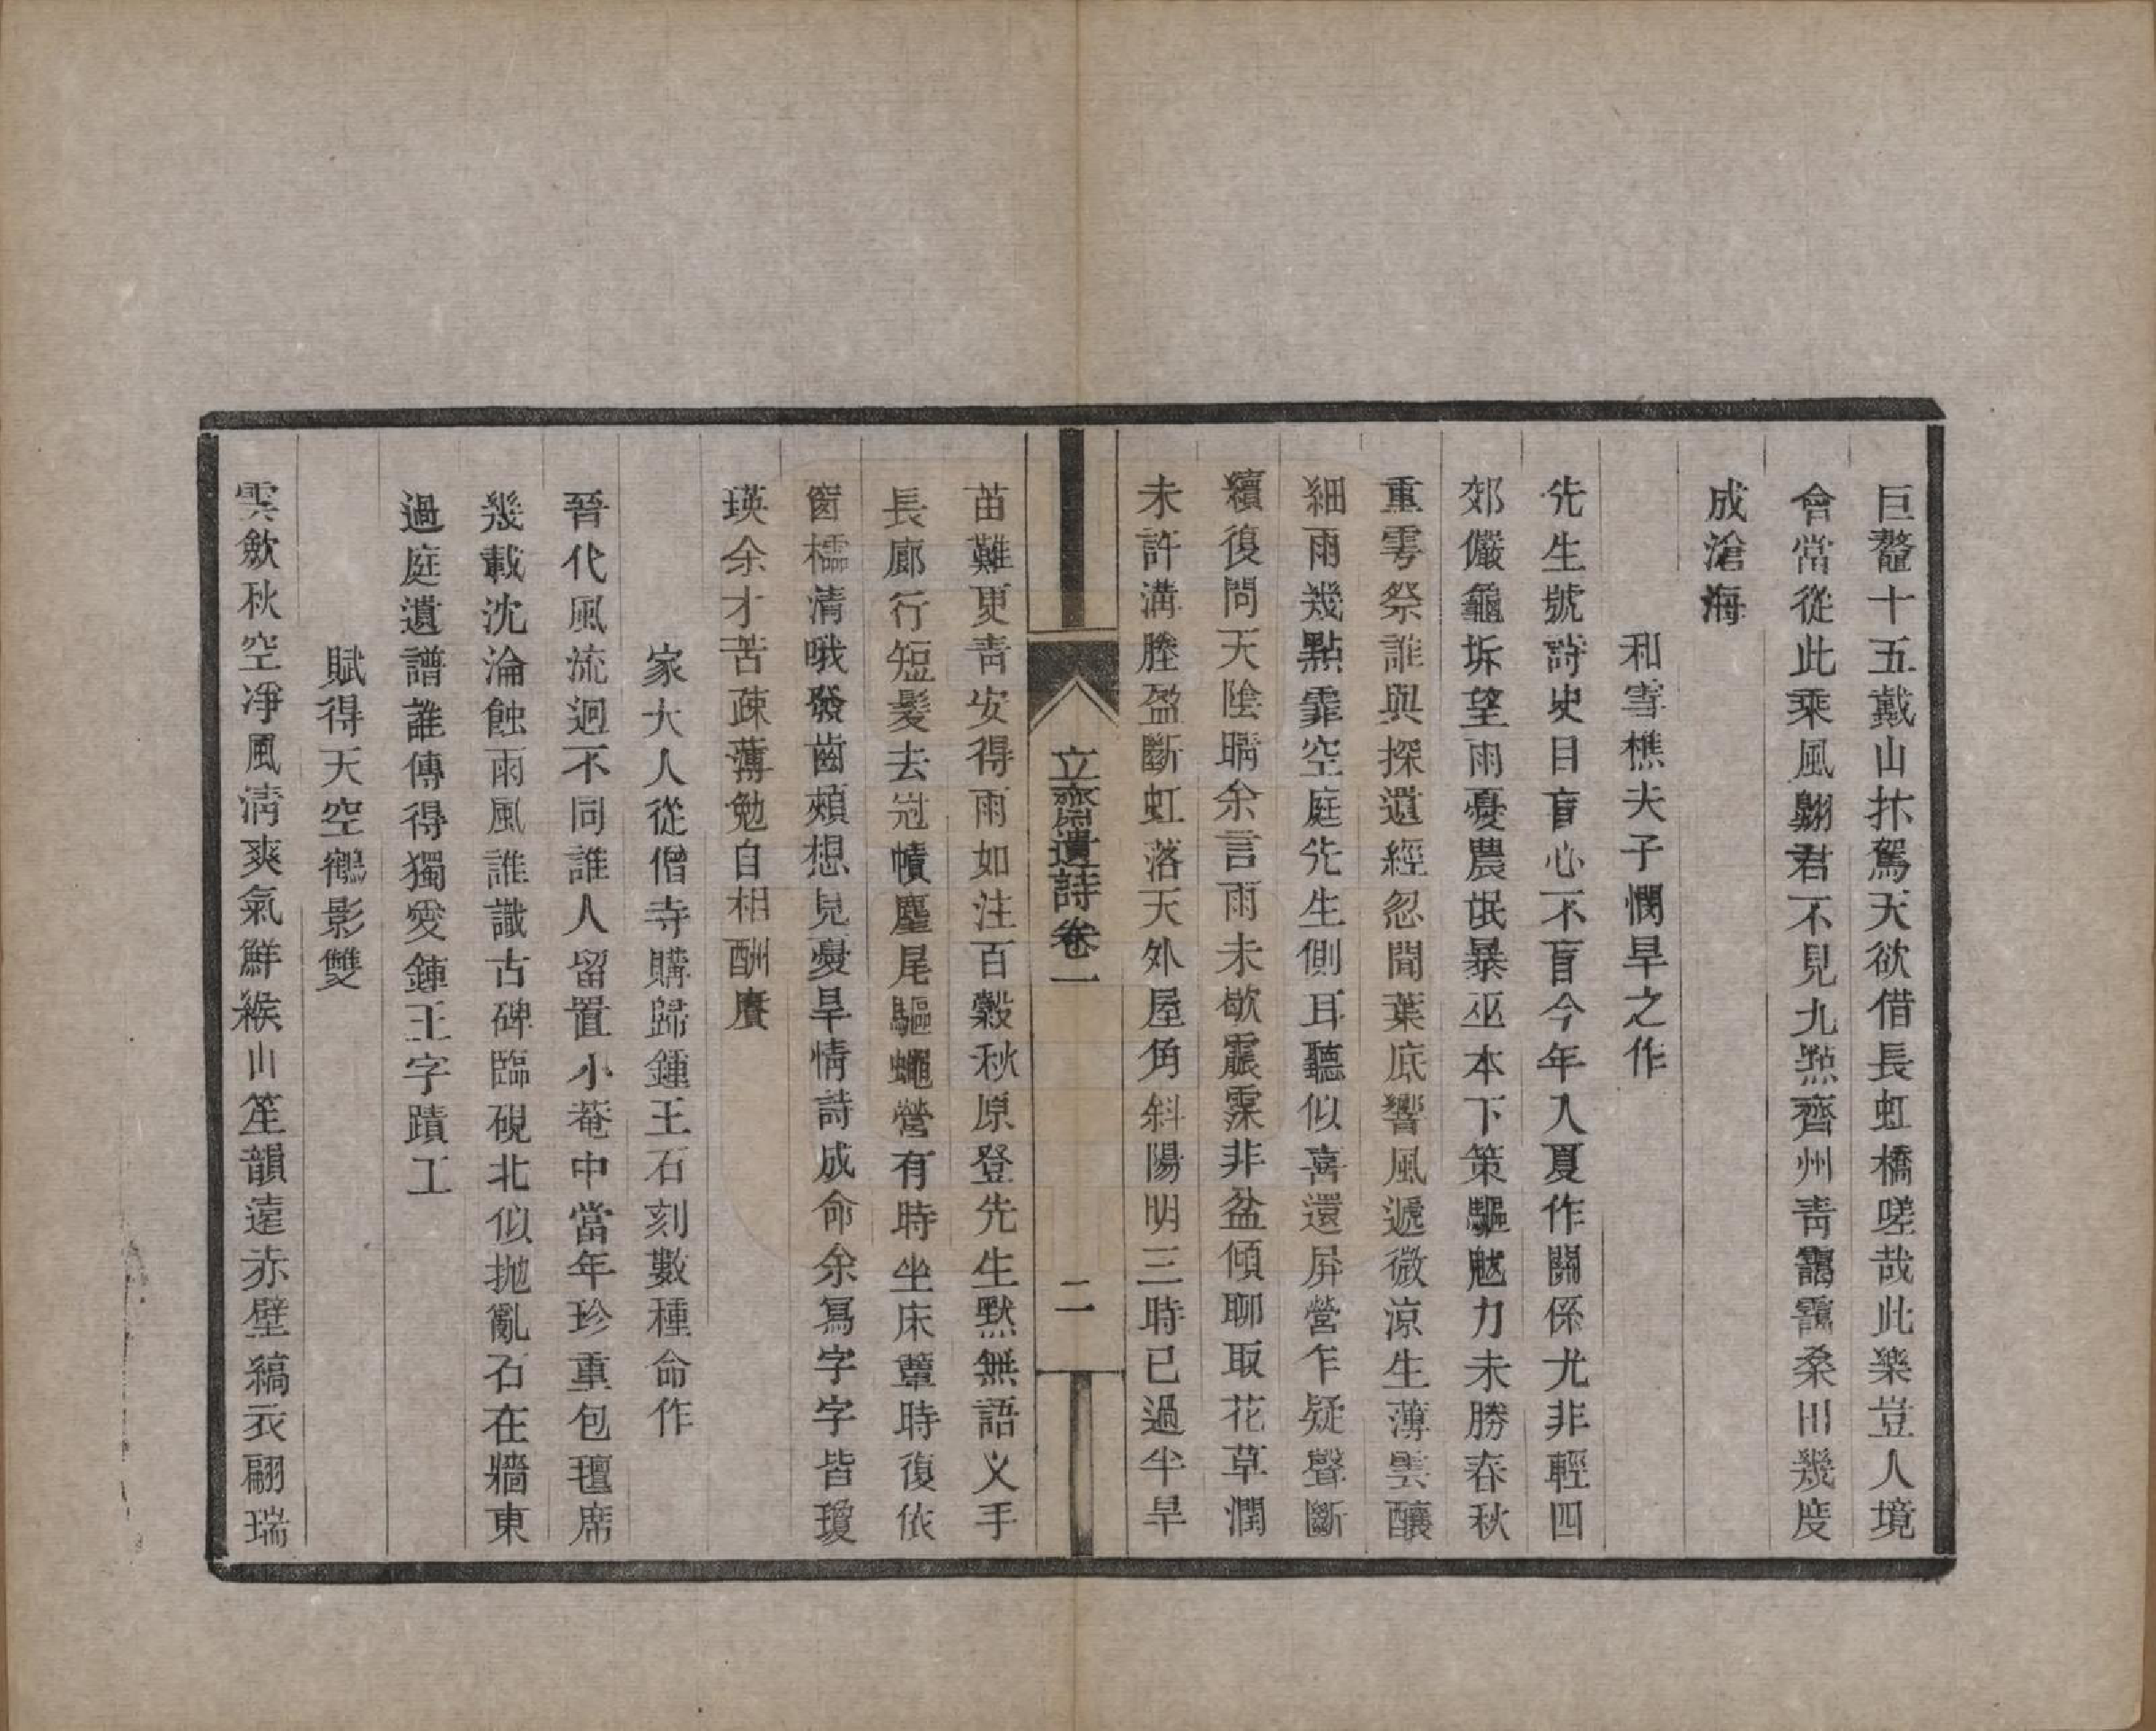 巨鼇十五戴山抃駕天欲借長虹橋嗟哉此樂豈人境
會當從此乘風翺君不見九㸃齊州青靄靄桑田幾度
成滄海
和雪樵夫子憫旱之作
先生號詩史目盲心不盲今年入夏作關係尤非輕四
郊儼龜坼望雨憂農氓暴巫本下策驅魃力未勝春秋
重雩祭誰與探遺經忽聞葉底響風遞微涼生薄雲釀
細雨幾點霏空庭先生側耳聽似喜還屏營乍疑聲斷
續復問天陰晴余言雨未歇霢霂非盆傾聊取花草潤
未許溝塍盈斷虹落天外屋角斜陽明三時已過半旱
立齋遺詩卷一
二
苗難更青安得雨如注百穀秋原登先生默無語义手
長廊行短髮去冠幘麈尾驅蠅營有時坐床簟時復依
窗櫺清哦發齒頰想見憂旱情詩成命余寫字字皆瓊
瑛余才苦疎薄勉自相酬賡
家大人從僧寺購歸鍾王石刻數種命作
晉代風流迥不同誰人留置小菴中當年珍重包氊席
幾載沈淪蝕雨風誰識古碑臨硯北似拋亂石在牆東
過庭遺譜誰傳得獨愛鍾王字蹟工
賦得天空鶴影雙
雲斂秋空淨風清爽氣鮮緱山笙韻遠赤壁縞衣翩瑞